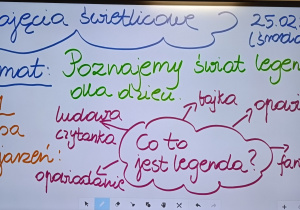 ajęcia świetlicowe 25.02
(środa
mat: Poznajemy świat legend
dla dzieci.
bajka
opowi
ludowa
czytanka
Co to
jest legenda?
opowiadanie
jarzeń:
fan